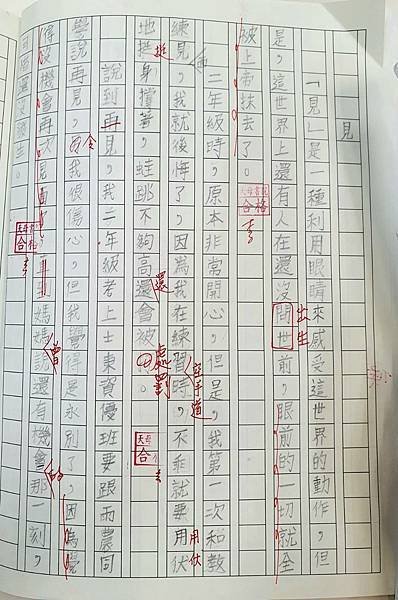 見
「見」是一種利用眼睛來感受這世界的動作,但
是,這世界上還有人在還沒問世前,眼前的一切就全
出生
被上帝抹去了。
合格
二年級時,原本非常開心,但是,我第一次和教
練見,我就後悔了,因為我在練習時,不乖就要用伏
面
空手道
地挺身撐著,蛙跳不夠高還會被
挺
還
處罰
合格
說到再見,我二年級考上士東資優班要跟雨農同
學說再見,我很傷心,但我覺得是永別了,因為覺
令
得沒機會再次見面了,媽媽說還有機會那一刻,
曾
的
合格